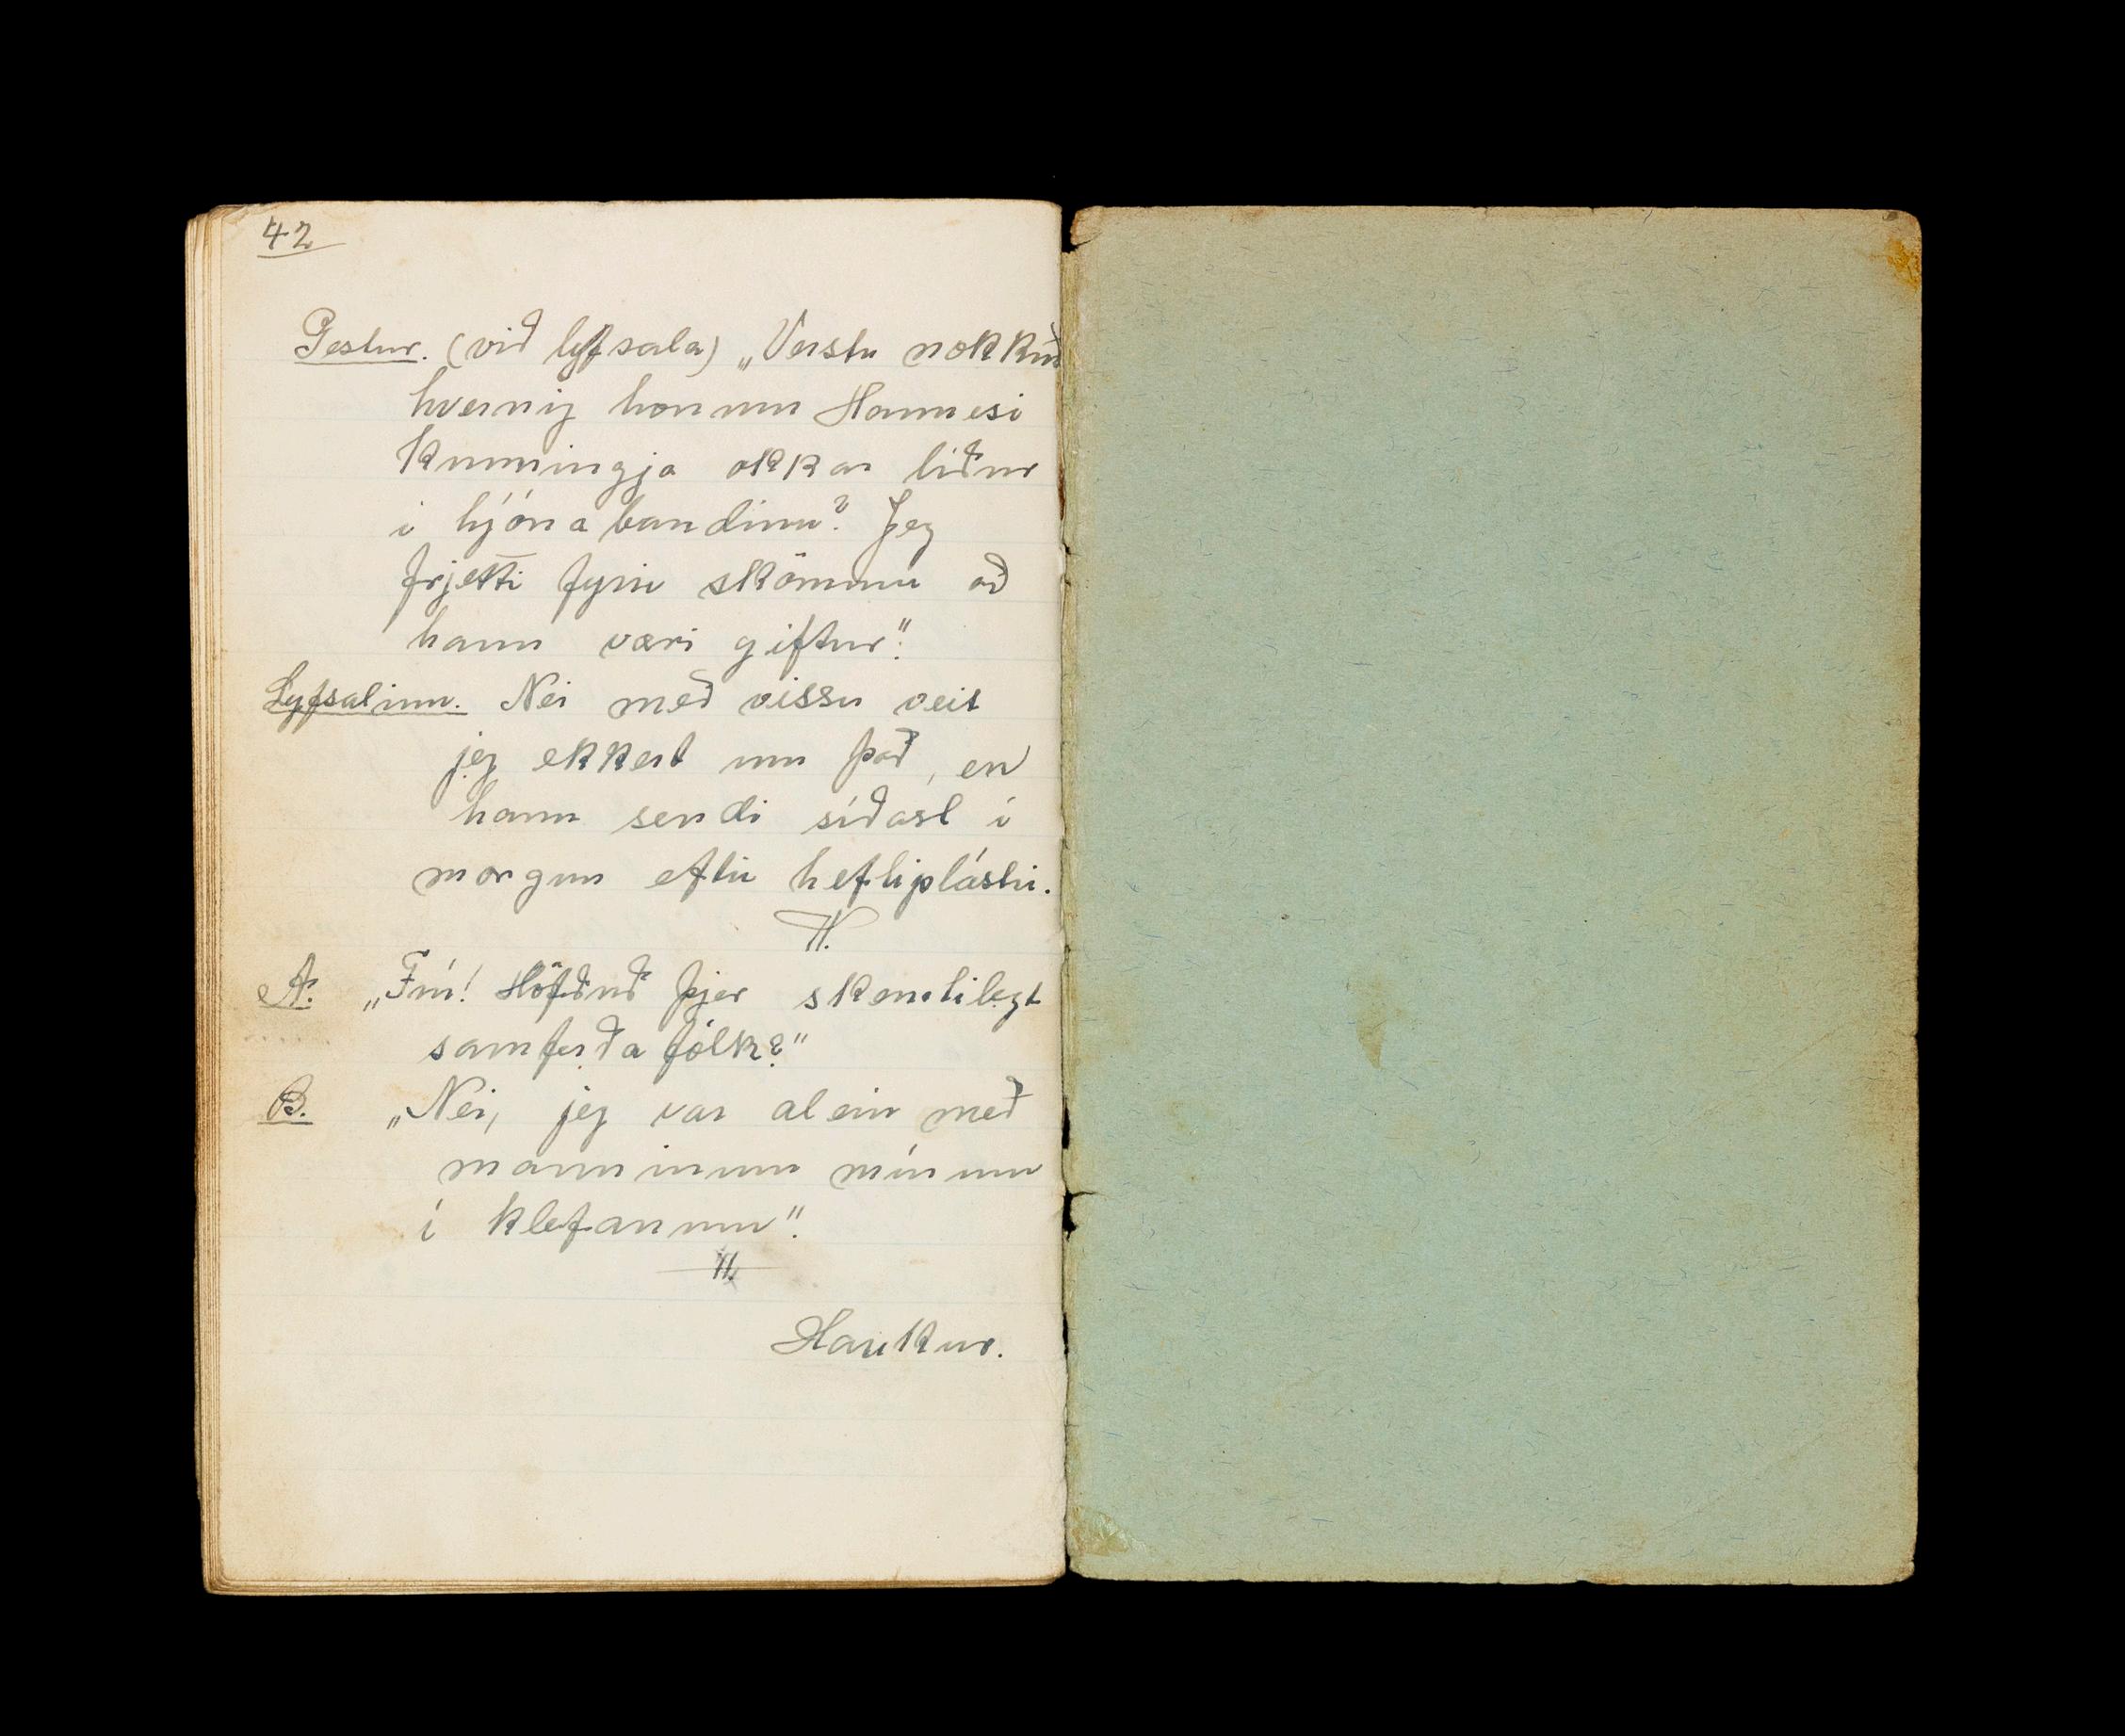 42
Gestur. (við lyfsala) „Veistu nokkuð
hvernig honum Hannesi
kunningja okkar líður
í hjónabandinu? Jeg
frjetti fyrir skömmu að
hann væri giftur".
Lyfsalinn. Nei með vissu veit
jeg ekkert um það, en
hann sendi síðast í
morgun eftir heftiplástri.
H.
A. „Frú! Höfðuð þjer skemtilegt
samferðafólk?"
B. „Nei, jeg var alein með
manninum mínum
í klefanum".
H.
Haukur.